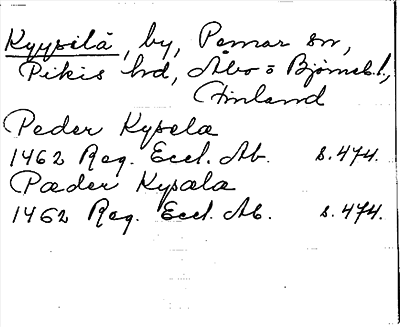 Kyysilä, by, Pemar sn,
Pikis hd, Åbo o Björneb.l.,
Finland
Peder Kysela
1462 Reg. Eccl. Ab. s. 474.
Pæder Kysæla
1462 Reg. Eccl. Ab. s. 474.